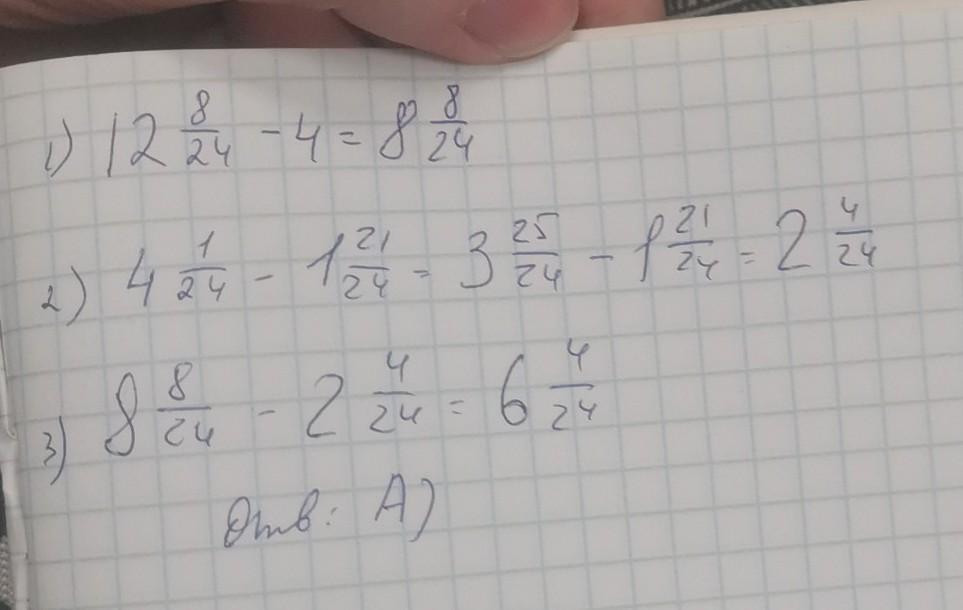 1) 12 8/24 - 4 = 8 8/24
2) 4 1/24 - 1 21/24 = 3 25/24 - 1 21/24 = 2 4/24
3) 8 8/24 - 2 4/24 = 6 4/24
Отв: А)